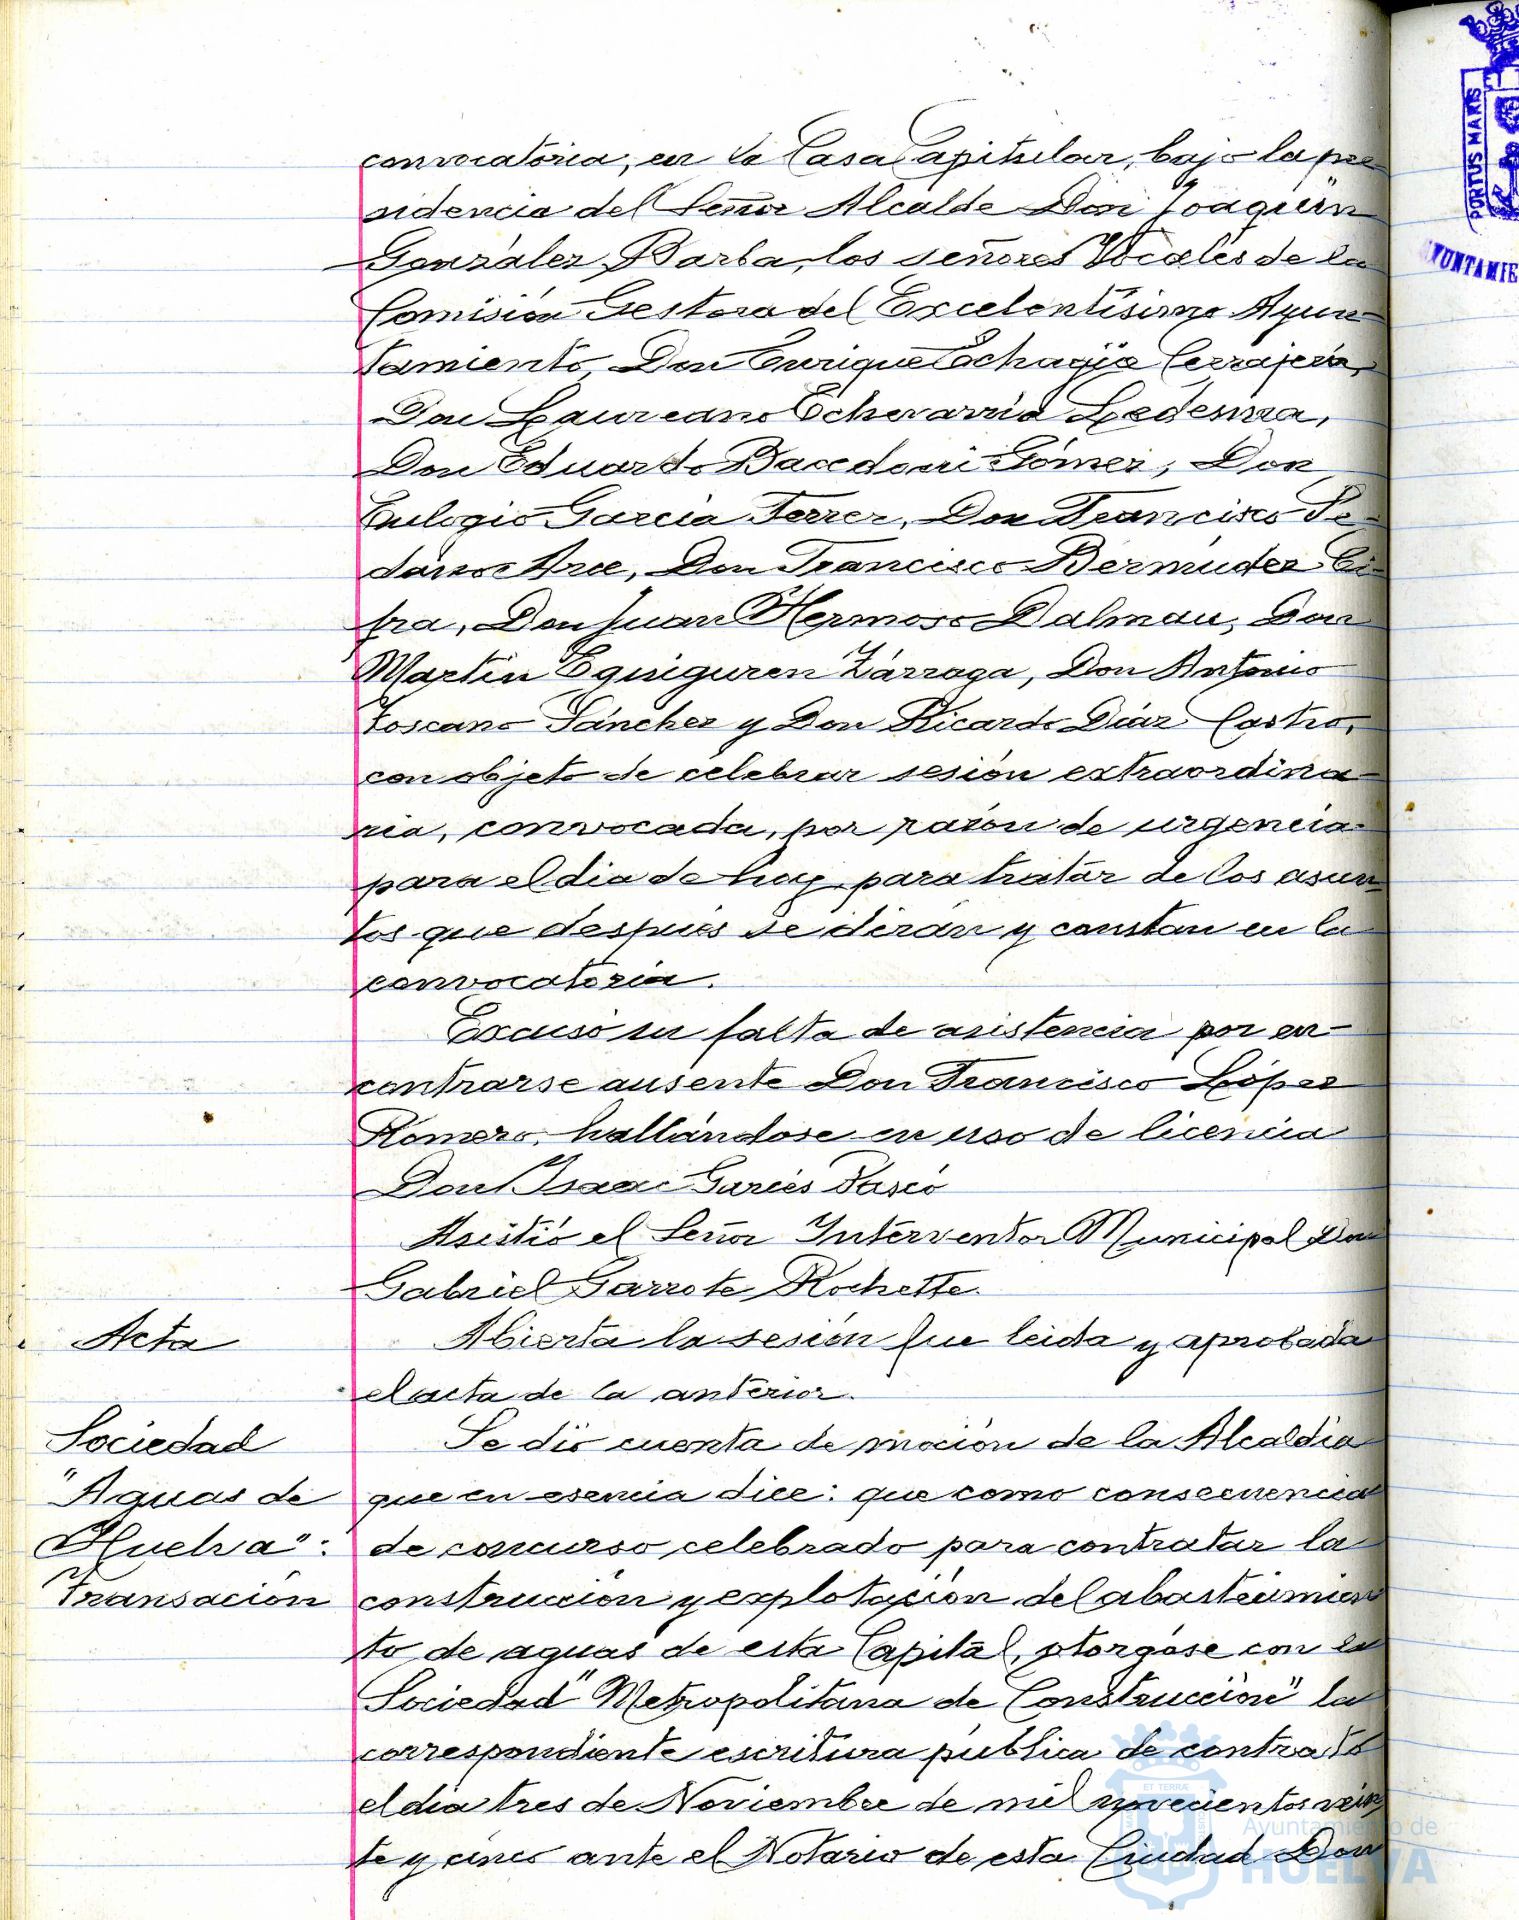 convocatoria, en la Casa Capitular, bajo la pre-
sidencia del Señor Alcalde Don Joaquin
González Barba, los señores Vocales de la
Comisión Gestora del Excelentísimo Ayun-
tamiento, Don Enrique Echagüe Cerrajería,
Don Laureano Echevarría Ledesma,
Don Eduardo Bacedoni Gómez, Don
Eulogio García Ferrer, Don Francisco Se-
dano Arce, Don Francisco Bermúdez Ci-
fra, Don Juan Hermoso Dalmau, Don
Martín Eguiguren Zárraga, Don Antonio
Toscano Sánchez y Don Ricardo Díaz Castro,
con objeto de celebrar sesión extraordina-
ria, convocada, por razón de urgencia
para el dia de hoy, para tratar de los asun-
tos que después se dirán y constan en la
convocatoria.
Excusó su falta de asistencia por en-
contrarse ausente Don Francisco López
Romero, hallándose en uso de licencia
Don Isaac Garcés Pascó
Asistió el Señor Interventor Municipal Don
Gabriel Garrote Rochette.
Acta
Abierta la sesión fue leida y aprobada
el acta de la anterior.
Sociedad
"Aguas de
Huelva":
Transación
Se dió cuenta de moción de la Alcaldía
que en esencia dice: que como consecuencia
de concurso celebrado para contratar la
construcción y explotación del abastecimien
to de aguas de esta Capital, otorgóse con la
Sociedad "Metropolitana de Construcción" la
correspondiente escritura pública de contrato
el dia tres de Noviembre de mil novecientos vein
te y cinco ante el Notario de esta Ciudad Don
PORTUS MARIS
AYUNTAMIE
ET TERRÆ
Ayuntamiento de
HUELVA